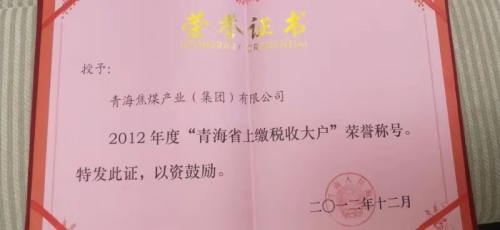 荣誉证书
授予：
青海焦煤产业（集团）有限公司
2012年度“青海省上缴税收大户”荣誉称号。
特发此证，以资鼓励。
二〇一二年十二月